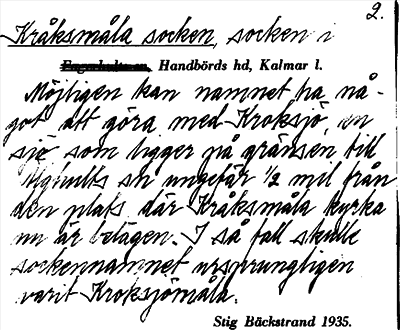 2.
Kråksmåla socken, socken i
Handbörds hd, Kalmar l.
Möjligen kan namnet ha nå-
got att göra med Kroksjö, en
sjö som ligger på gränsen till
Älghults sn ungefär 1/2 mil från
den plats där Kråksmåla kyrka
nu är belägen. I så fall skulle
sockennamnet ursprungligen
varit Kroksjömåla.
Stig Bäckstrand 1935.